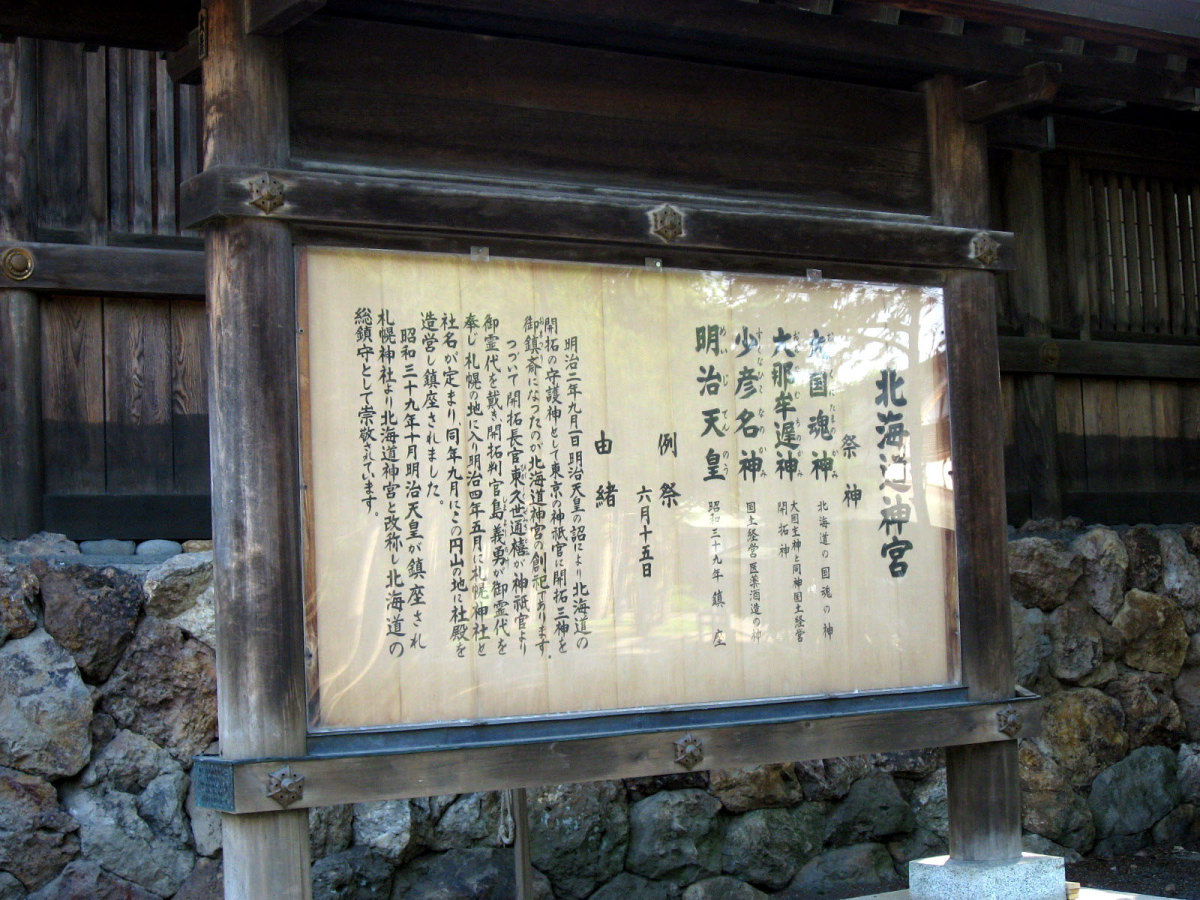 北海道神宮
祭神
大国魂神 北海道の国魂の神
大那牟遅神 大国主神と同神国土経営
開拓神
少彦名神 国土経営医薬酒造の神
明治天皇 昭和三十九年鎮座
めいじてんのう
例祭 六月十五日
由緒
明治二年九月一日明治天皇の詔により北海道の
開拓の守護神として東京の神祇官に開拓三神を
御鎮斎になつたのが北海道神宮の創祀であります。
つづいて開拓長官東久世通禧が神祇官より
御霊代を戴き、開拓判官島義勇が御霊代を
奉じ札幌の地に入り明治四年五月に札幌神社と
社名が定まり、同年九月にこの円山の地に社殿を
造営し鎮座されました。
昭和三十九年十月明治天皇が鎮座され
札幌神社より北海道神宮と改称し北海道の
総鎮守として崇敬されています。